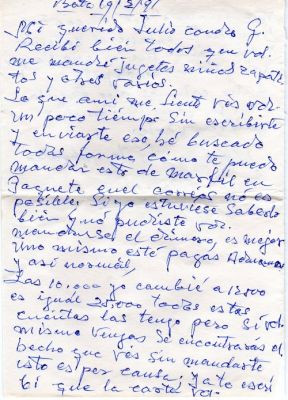 Bata 19/2/91
Mi querido Julio Condes G.
Recibi bien todos que vd.
me mandré jugetes niños zapati
tos y otros varios.
Lo que ami me siento vés vd.
un poco tiempo sin escribirte
y enviarte ese, hé buscado
todas forma como te puedo
mandar esto de marfil en
paquete en el correos no es
posible. Si yo estuviese sabedo
bién y nó pudiste vd.
mandarse el dinero, es mejor
uno mismo esté pagas Aduanas
y asi normál,
Las 10.000 yo cambié a 12500
es igual 25.000 todas estas
cuentas las tengo pero Si vd.
mismo vengas Sé encontraras el
hecho que vés sin mandarte
esto es por causa. Ya te escri
bí que la carta vd.